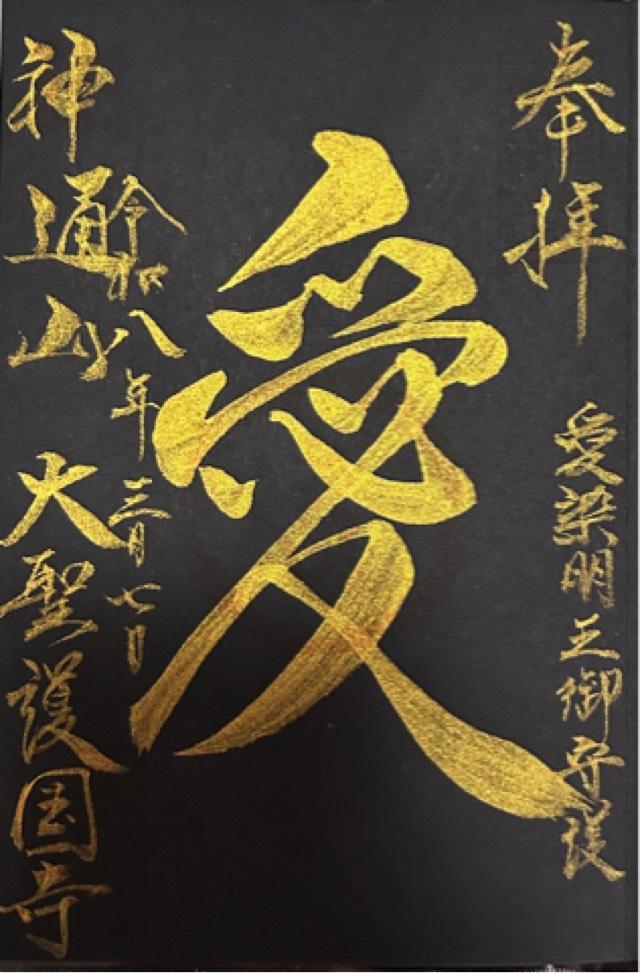 奉拝
愛染明王御守護
愛
令和八年三月七日
神通山
大聖護国寺